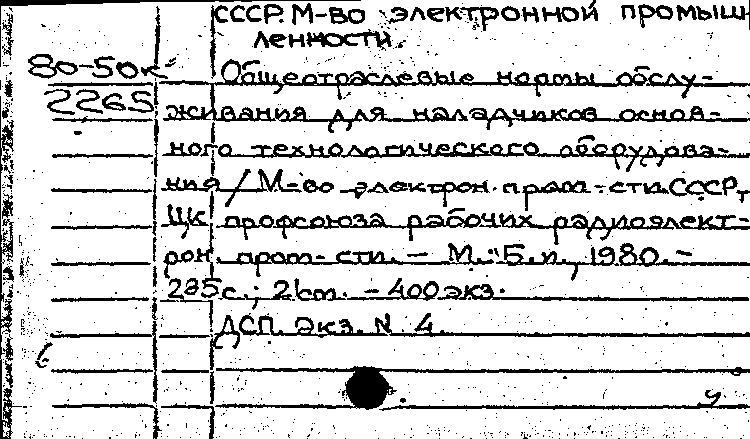 СССР. М-во электронной промыш
ленности.
80-50к
2265
Общеотраслевые нормы обслу-
живания для наладчиков основ-
ного технологического оборудова-
ния / М-во электрон. пром-сти СССР,
ЦК профсоюза рабочих радиоэлект-
рон. пром-сти. — М.: Б.и., 1980. —
235с.; 21cm. - 400 экз.
ДСП. Экз. N 4.